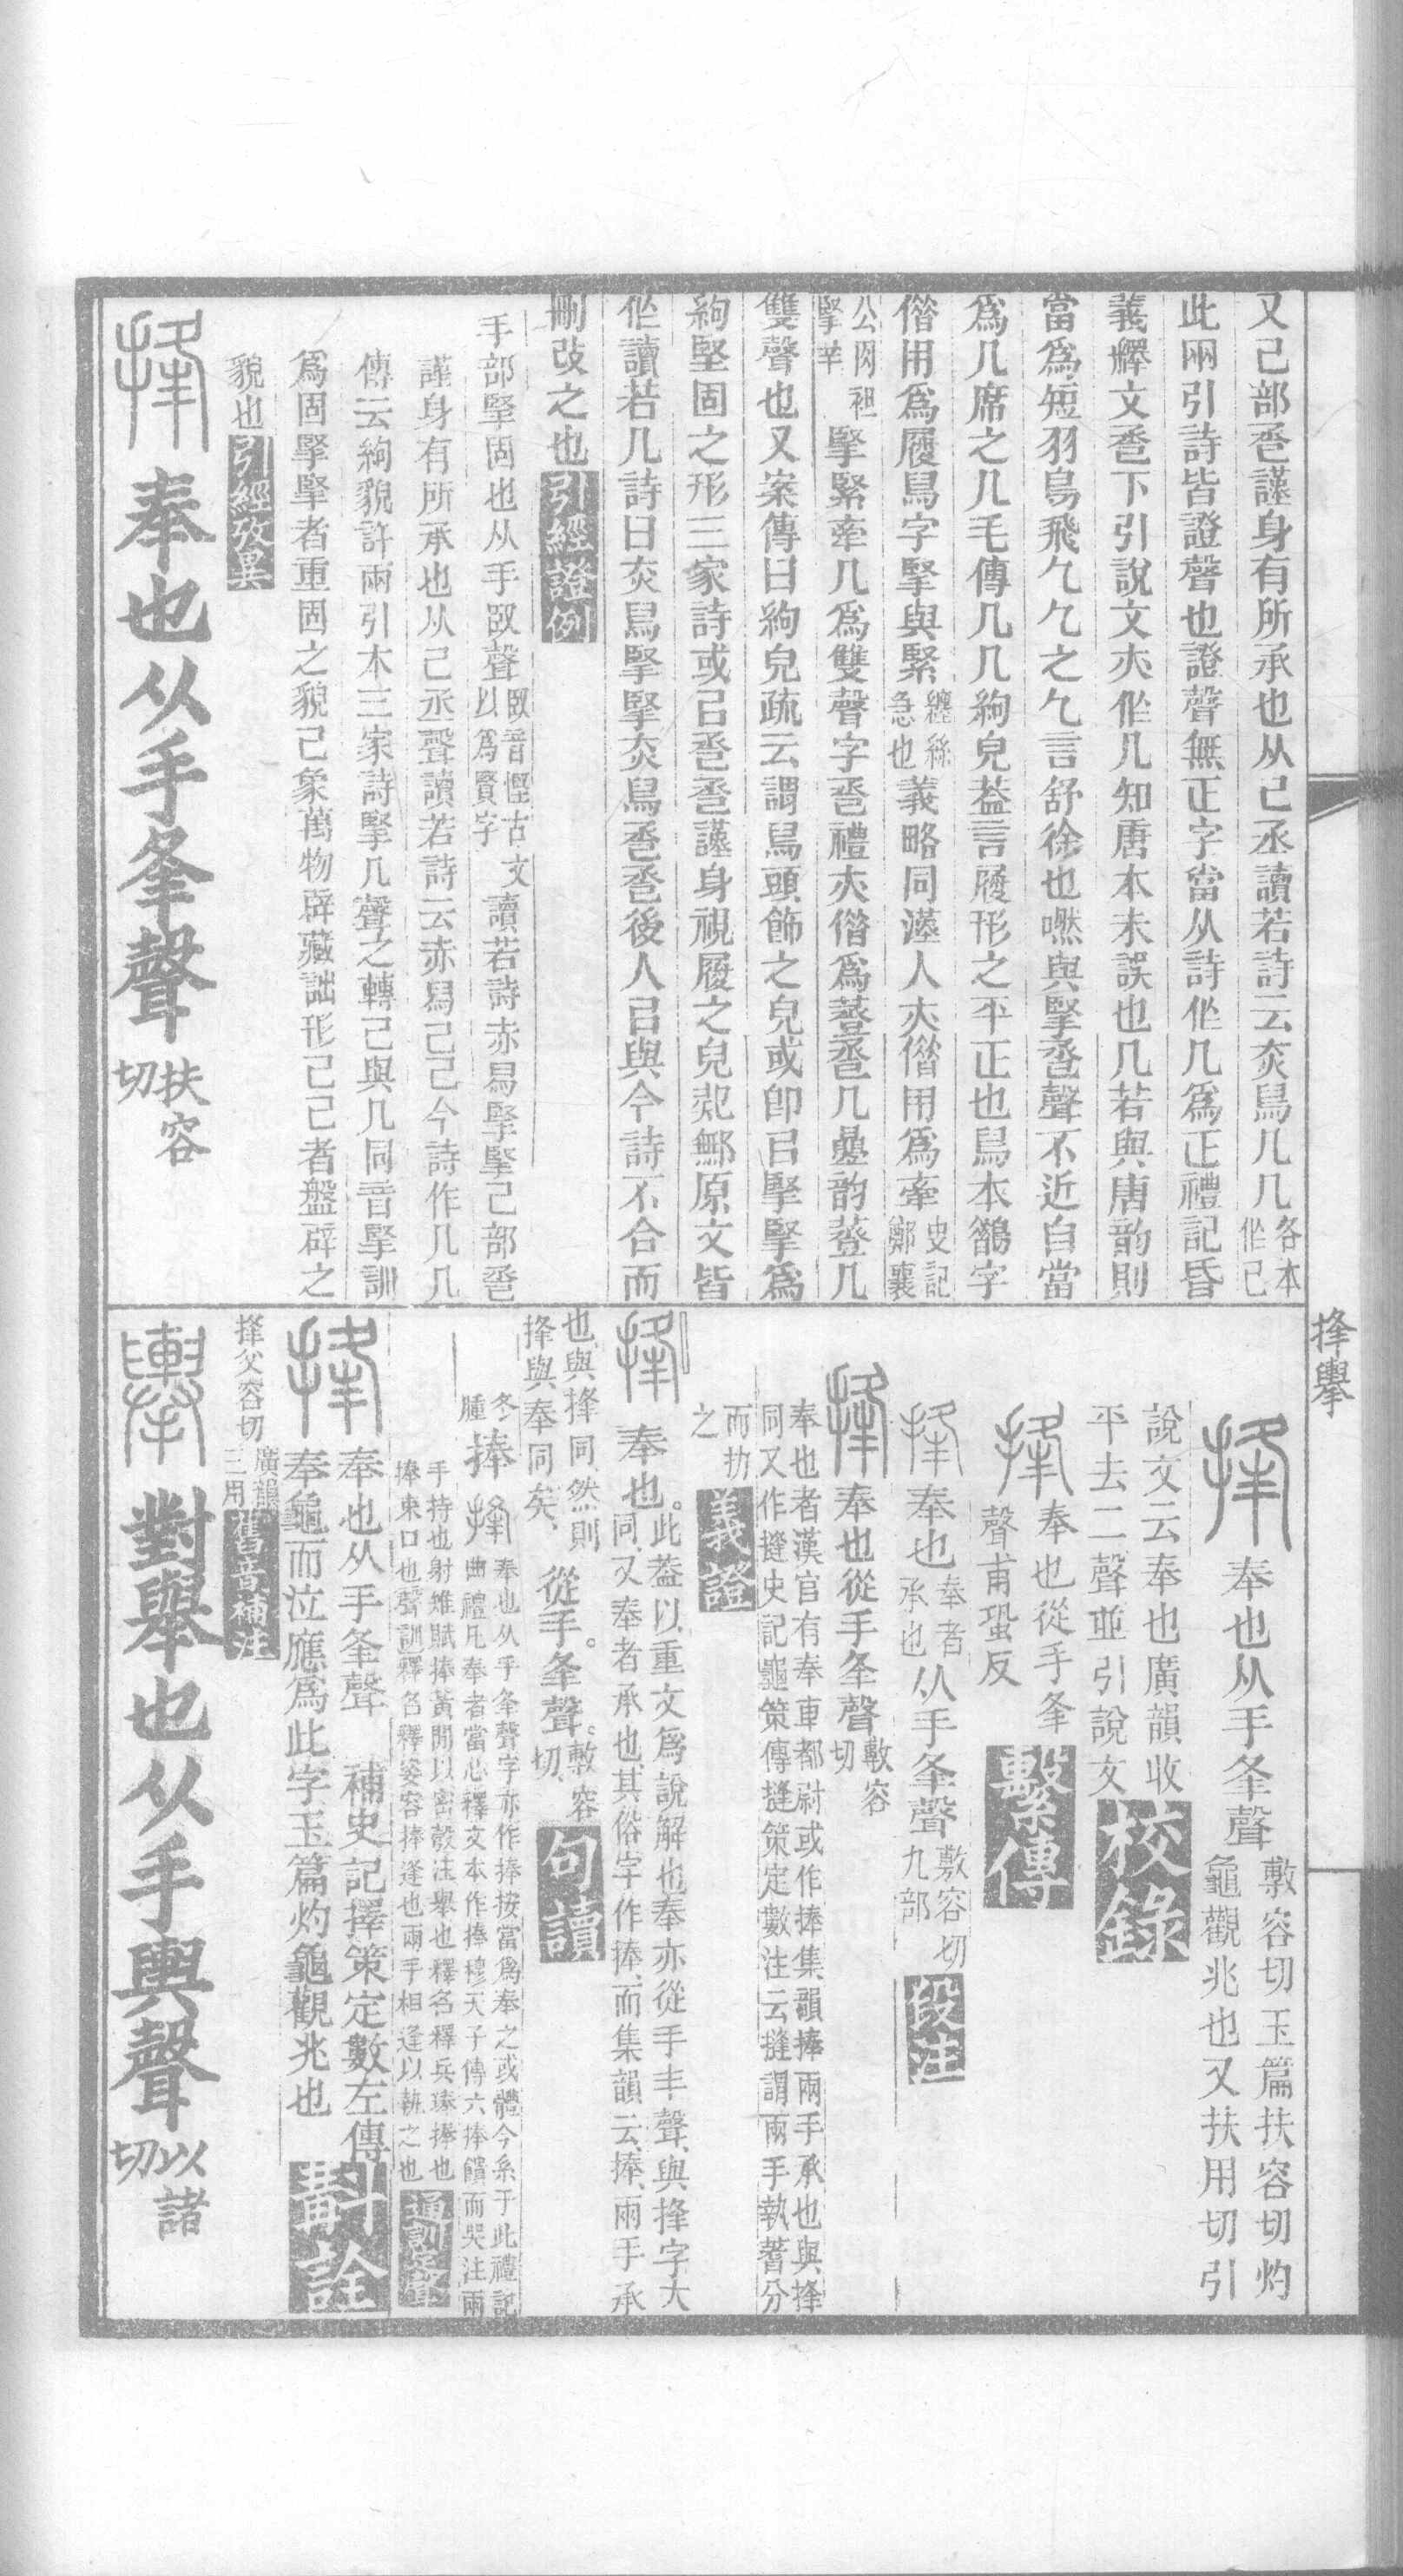 又己部巹謹身有所承也从己丞讀若詩云灻舄几几各本作己
此兩引詩皆證聲也證聲無正字當从詩作几爲正禮記昏
義釋文巹下引說文亦作几知唐本未誤也几若與唐韵則
當爲短羽鳥飛𠘧𠘧之𠘧言舒徐也嘫與掔巹聲不近自當
爲几席之几毛傳几几絇皃葢言履形之平正也舄本鵲字
借用爲履舄字掔與緊纏絲急也義略同漢人亦借用爲牽史記鄭襄
公肉袒掔羊掔緊牽几爲雙聲字巹禮亦借爲蓳巹几疊韵蓳几
雙聲也又案傳曰絇皃疏云謂舄頭飾之皃或卽㠯掔掔爲
絇堅固之形三家詩或㠯巹巹謹身視履之皃㷉鄦原文皆
作讀若几詩曰灻舄掔掔灻舄巹巹後人㠯與今詩不合而
刪改之也引經證例
手部掔固也从手臤聲臤音慳古文以爲賢字讀若詩赤舄掔掔己部巹
謹身有所承也从己丞聲讀若詩云赤舄己己今詩作几几
傳云絇貌許兩引本三家詩掔几聲之轉己與几同音掔訓
爲固掔掔者重固之貌己象萬物辟藏詘形己己者盤辟之
貌也引經攷異
𢪇奉也从手夆聲扶容切
捀轝
捀奉也从手夆聲敷容切玉篇扶容切灼龜觀兆也又扶用切引
說文云奉也廣韻收平去二聲並引說文校錄
捀奉也從手夆聲甫蛩反繫傳
捀奉也奉者承也从手夆聲敷容切九部段注
捀奉也從手夆聲敷容切
奉也者漢官有奉車都尉或作捧集韻捧兩手承也與捀
同又作摓史記龜策傳摓策定數注云摓謂兩手執蓍分
而扐之義證
捀奉也。此葢以重文爲說解也奉亦從手丰聲、與捀字大
同、又奉者承也、其俗字作捧、而集韻云、捧、兩手承
也、與捀同、然則捀與奉同矣、從手。夆聲。敷容切、句讀
冬腫捧捀奉也从手夆聲字亦作捧按當爲奉之或體今系于此禮記
曲禮凡奉者當心釋文本作捧穆天子傳六捧饋而哭注兩
手持也射雉賦捧黃閒以密彀注舉也釋名釋兵琫捧也
捧束口也聲訓釋名釋姿容捧逢也兩手相逢以執之也通訓定聲
捀奉也从手夆聲補史記擇策定數左傳
奉龜而泣應爲此字玉篇灼龜觀兆也斠詮
捀父容切廣韻三用舊音補注
轝對舉也从手輿聲以諸切